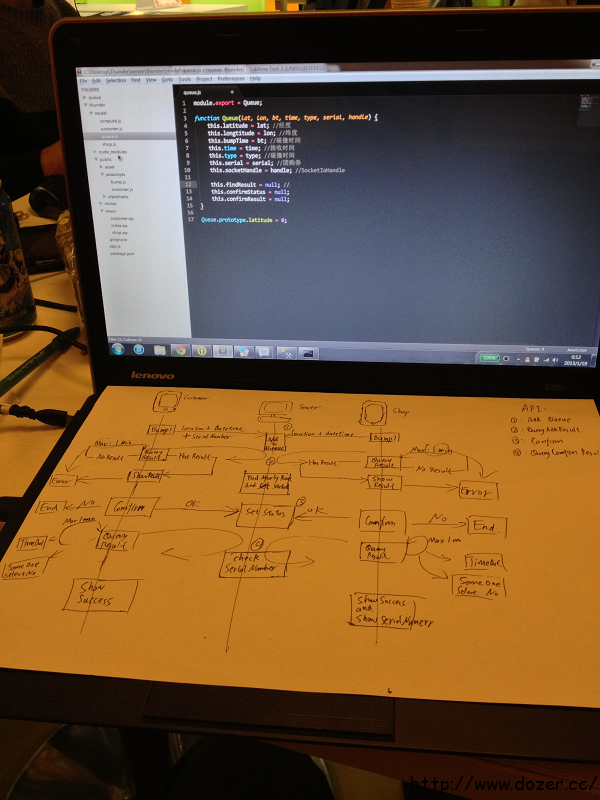 File Edit Selection Find View Goto Tools Project Preferences Help
FOLDERS
queue
thunder
model
compute.js
customer.js
queue.js
shop.js
node_modules
public
javascripts
bump.js
customer.js
stylesheets
routes
views
customer.ejs
index.ejs
shop.ejs
.gitignore
app.js
package.json
queue.js
1 module.export = Queue;
2
3 function Queue(lat, lon, bt, time, type, serial, handle) {
4 this.latitude = lat; //经度
5 this.longtitude = lon; //纬度
6 this.bumpTime = bt; //碰撞时间
7 this.time = time; //接收时间
8 this.type = type; //碰撞时间
9 this.serial = serial; //团购券
10 this.socketHandle = handle; //SocketIoHandle
11
12 this.findResult = null; //
13 this.confirmStatus = null;
14 this.confirmResult = null;
15 }
16
17 Queue.prototype.latitude = 0;
JavaScript
100%
0:12
2013/1/19
lenovo
Customer
Server
Shop
API:
①: Add Queue
②: Query Add Result
③: Confirm
④ Query Confirm Result
Bump!
Location + DateTime
+ Serial Number
①
Add
Queue
Location + dateTime
Bump!
Max: 1 min
No Result
Query
Result
Has Result
②
Has Result
Query
Result
Max: 1 min
No Result
Error
Show Result
Find Nearly
Show
Result
Error
End
No
Confirm
OK
Set Status
③
OK
Confirm
No
End.
Query
Result
④
check
Serial Number
Query
Result
Max 1m
TimeOut
Some One
Select No
TimeOut
Some One
Select No
Show
Success
Show Success
and
Show Serial Number
http://www.dozer.cc/